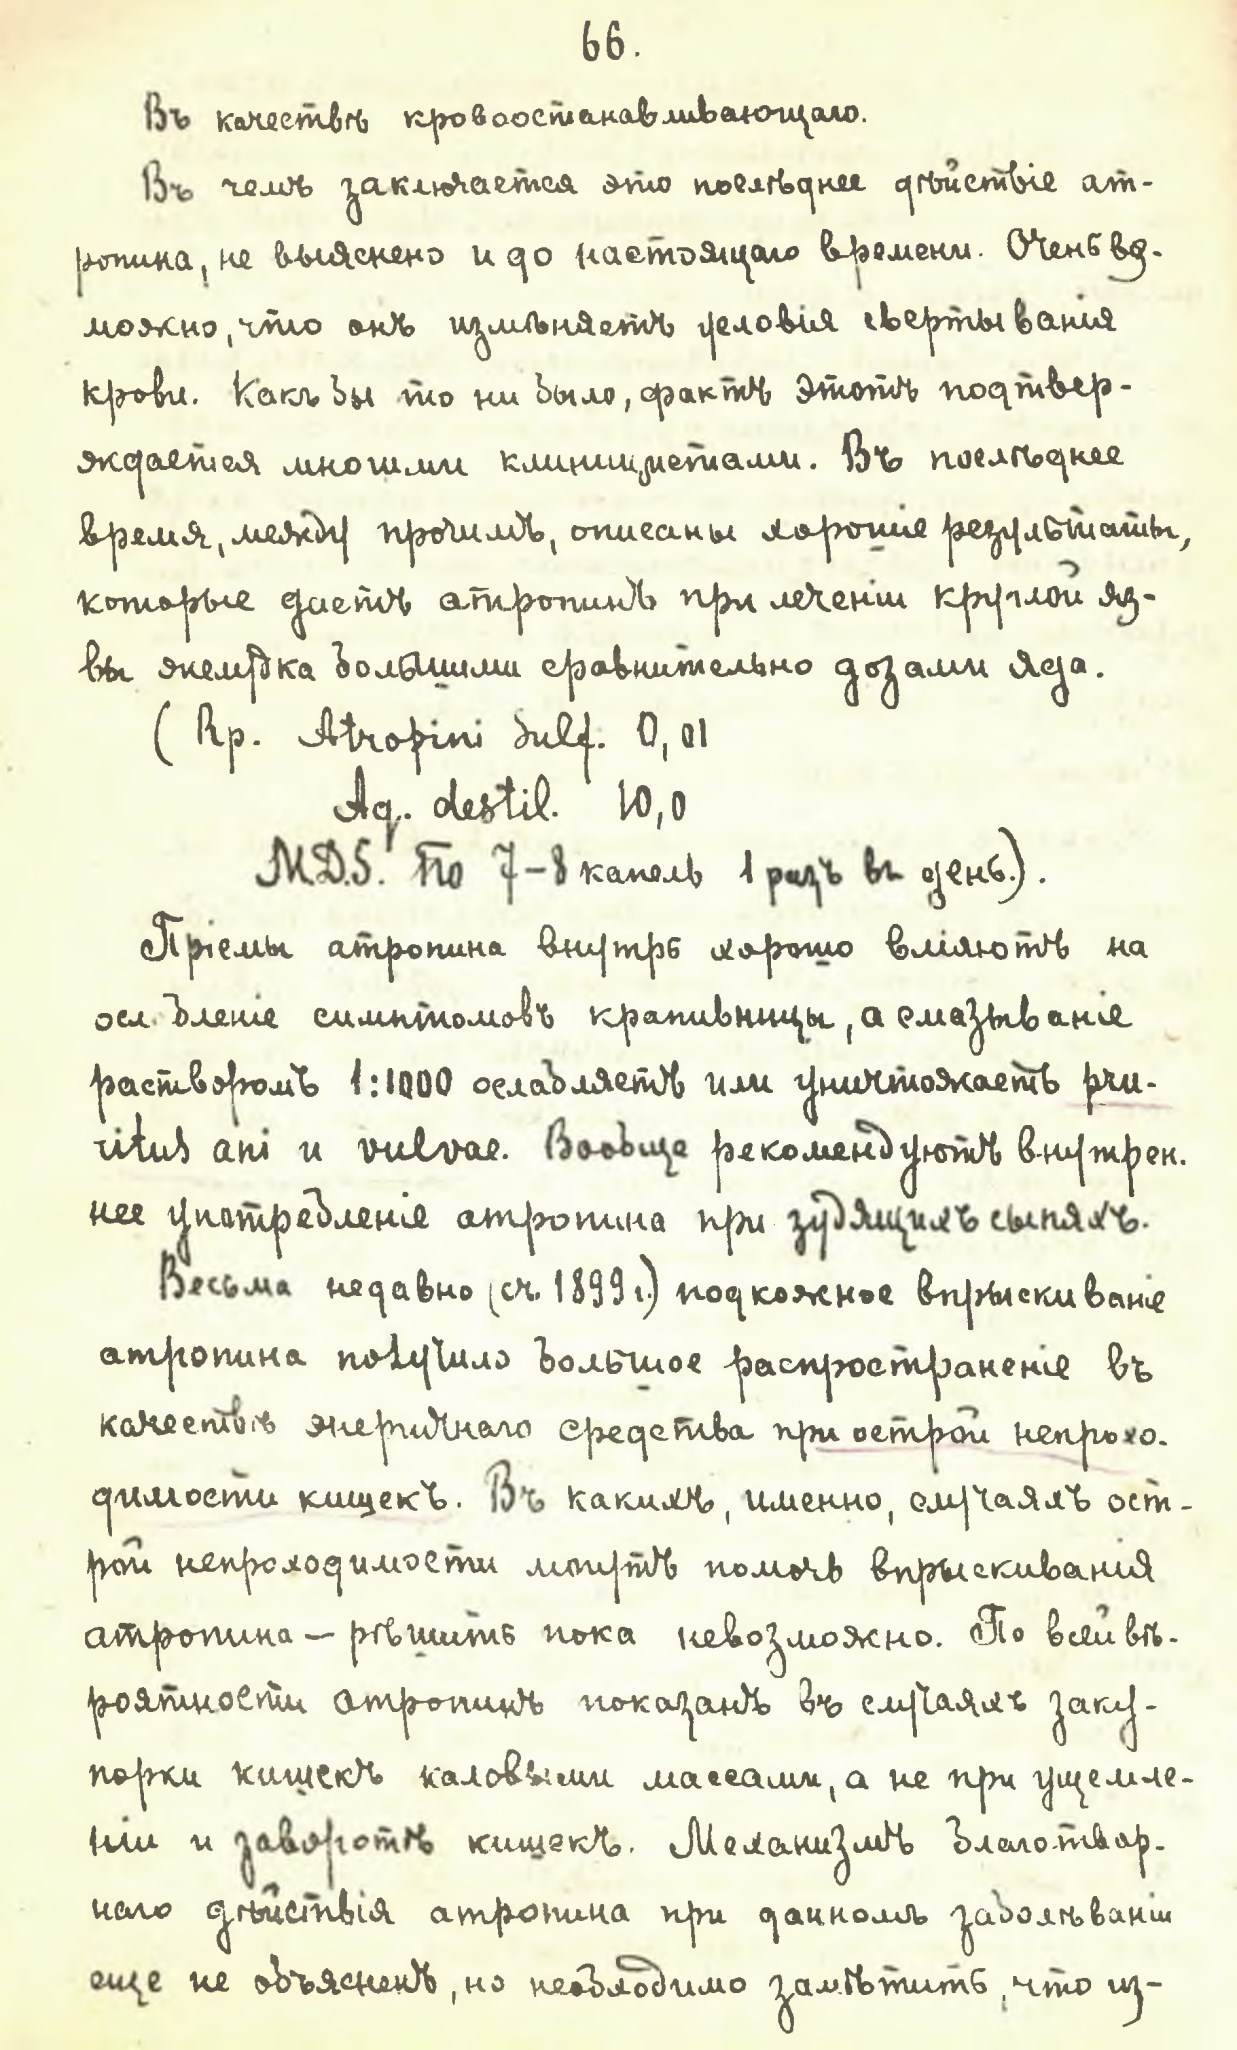 66.
Въ качествѣ кровоостанавливающаго.
Въ чемъ заключается это послѣднее дѣйствіе ат-
ропина, не выяснено и до настоящаго времени. Очень воз-
можно, что онъ измѣняетъ условія свертыванія
крови. Какъ бы то ни было, фактъ этотъ подтвер-
ждается многими клиницистами. Въ послѣднее
время, между прочимъ, описаны хорошіе результаты,
которые даетъ атропинъ при леченіи круглой яз-
вы желудка большими сравнительно дозами яда.
(Rp. Atropini Sulf. 0,01
Aq. destil. 10,0
M.D.S. По 7–8 капель 1 разъ въ день.).
Пріемы атропина внутрь хорошо вліяютъ на
осл бленіе симптомовъ крапивницы, а смазываніе
растворомъ 1:1000 ослабляетъ или уничтожаетъ pru-
ritus ani и vulvae. Вообще рекомендуютъ внутрен-
нее употребленіе атропина при зудящихъ сыпяхъ.
Весьма недавно (съ 1899 г.) подкожное впрыскиваніе
атропина получило большое распространеніе въ
качествѣ энергичнаго средства при острой непрохо-
димости кишекъ. Въ какихъ, именно, случаяхъ ост-
рой непроходимости могутъ помочь впрыскиванія
атропина — рѣшить пока невозможно. По всей вѣ-
роятности атропинъ показанъ въ случаяхъ заку-
порки кишекъ каловыми массами, а не при ущемле-
ніи и заворотѣ кишекъ. Механизмъ благотвор-
наго дѣйствія атропина при данномъ заболѣваніи
еще не объясненъ, но необходимо замѣтить, что из-